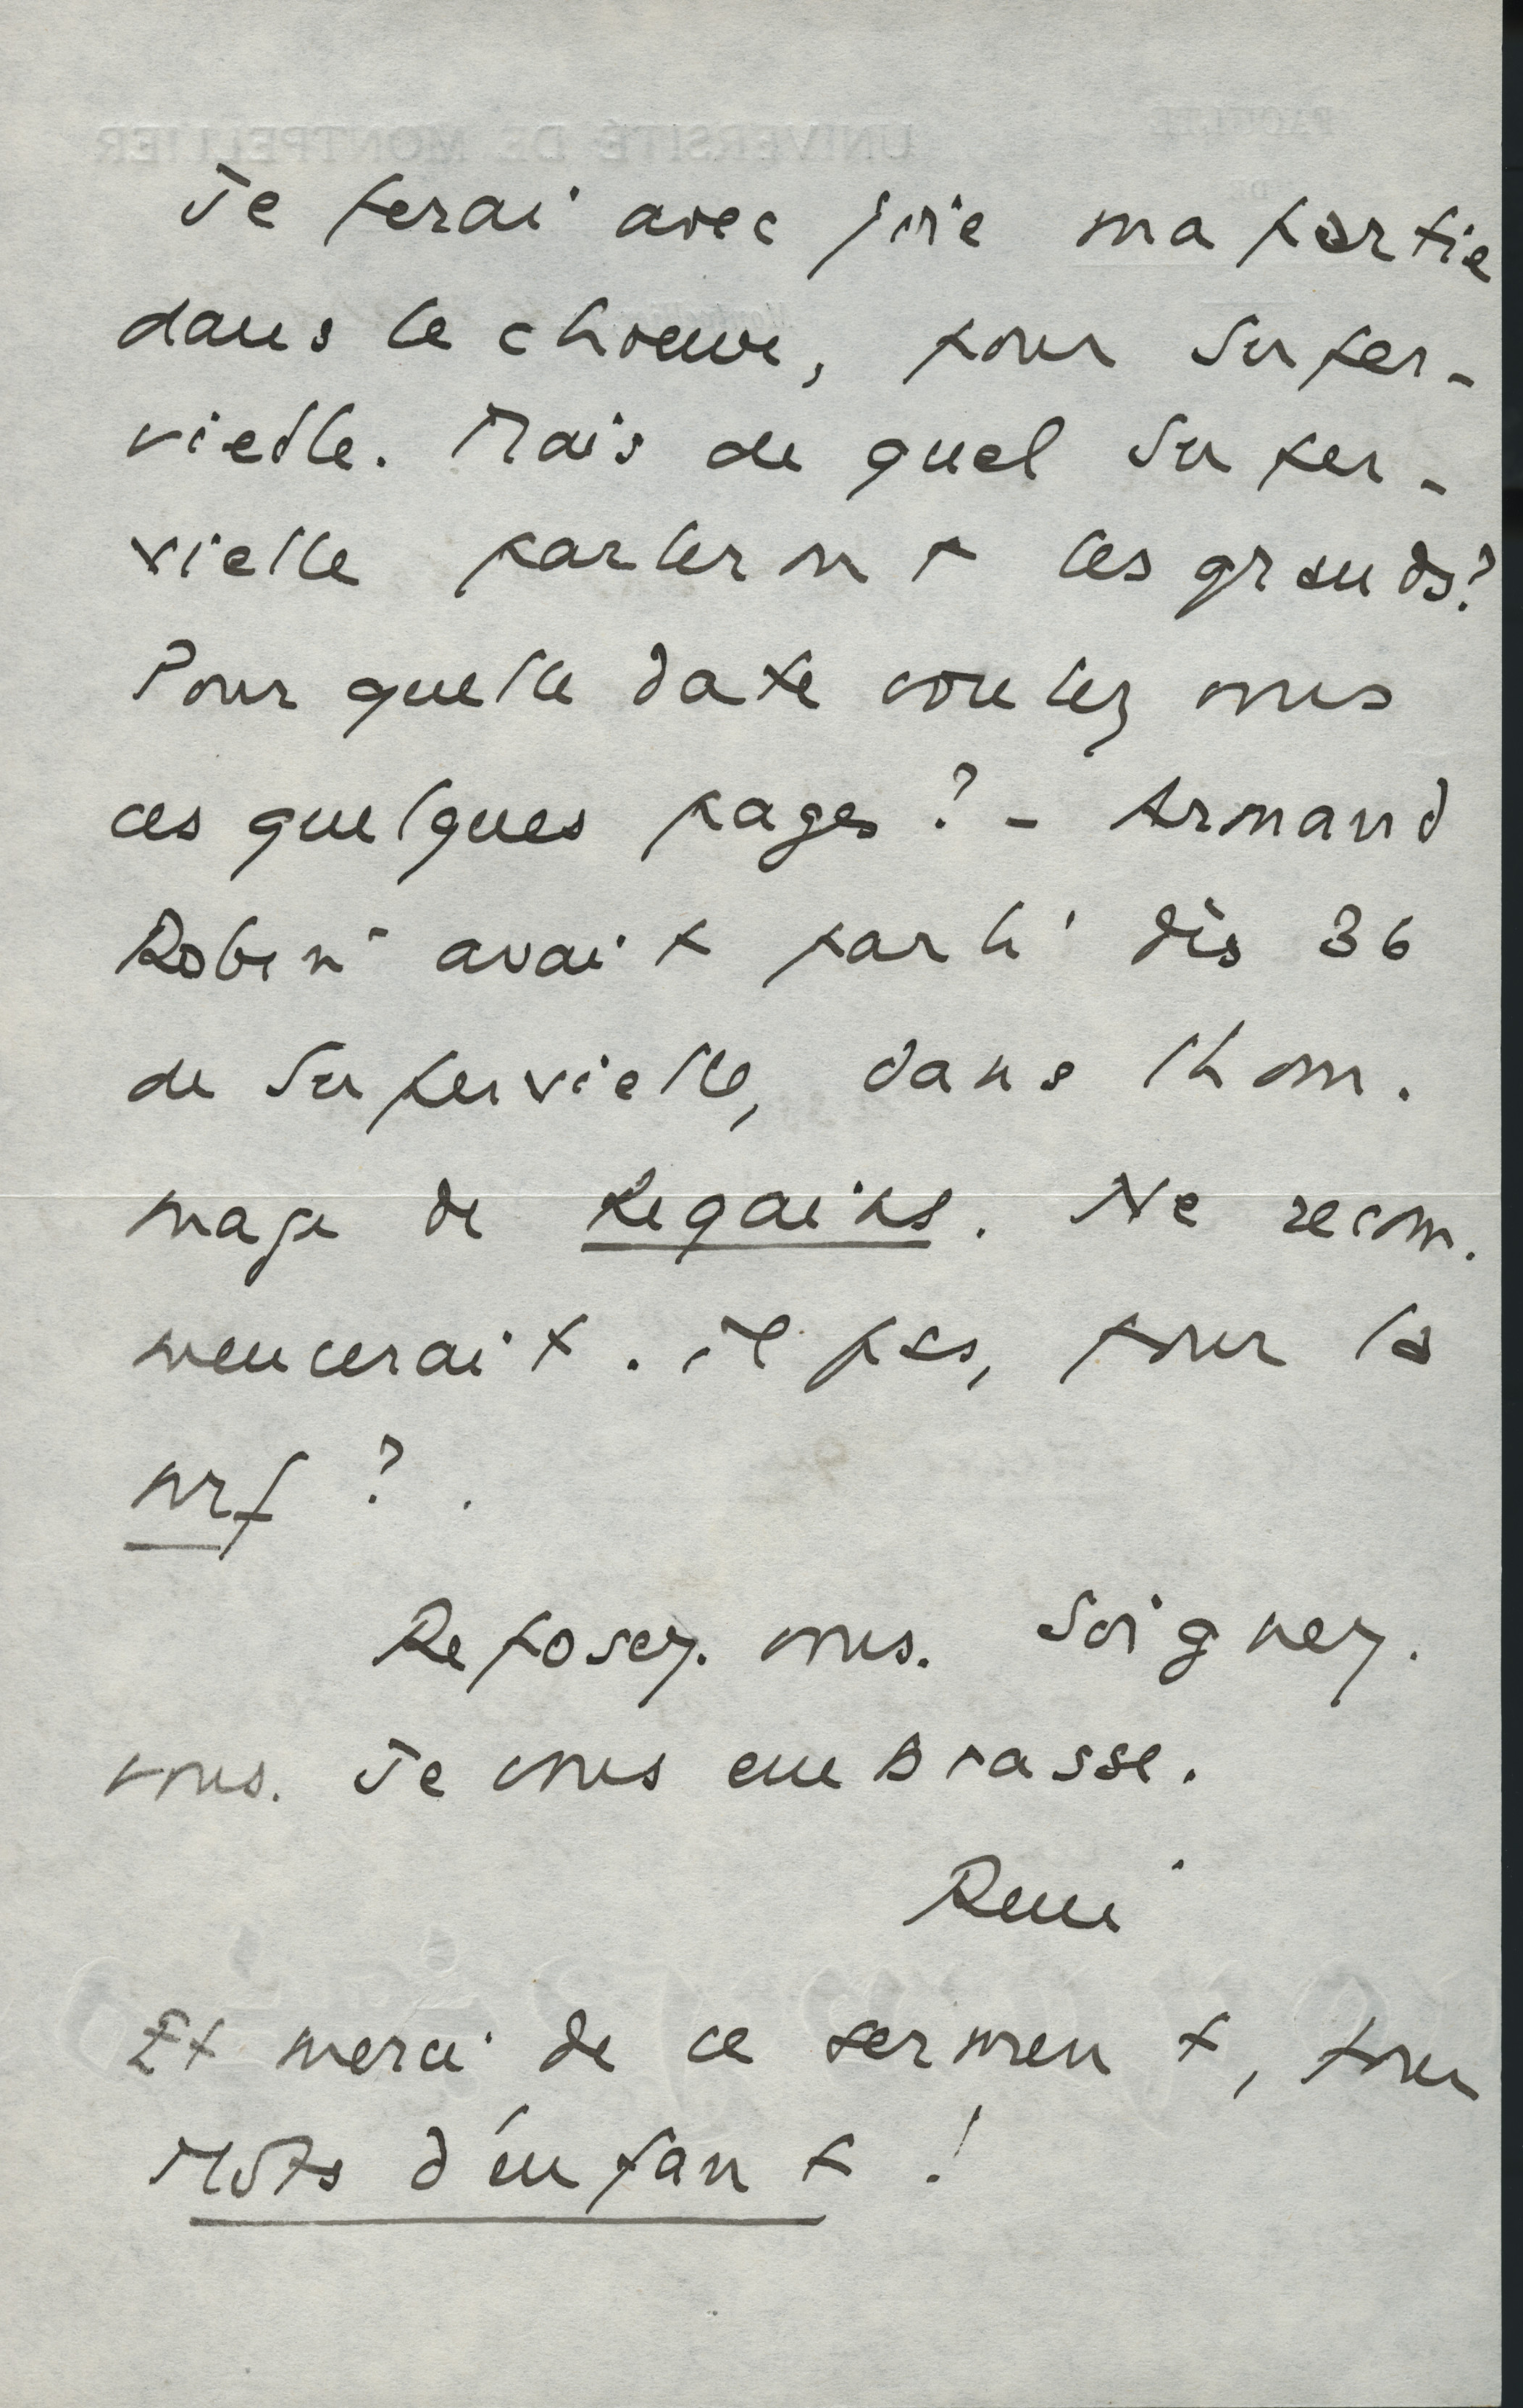 Je ferai avec joie ma partie
dans le choeur, pour Super-
vielle. Mais de quel Super-
vielle parleront les grands?
Pour quelle date voulez vous
ces quelques pages ? - Armand
Robin avait parlé dès 36
de Supervielle, dans l'hom-
mage de Regains. Ne recom-
mencerait-il pas, pour la
nrf ?.
Reposez-vous. Soignez-
vous. Je vous embrasse.
René
Et merci de ce serment, pour
Mots d'enfant !
UNIVERSITÉ DE MONTPELLIER
FACULTÉ